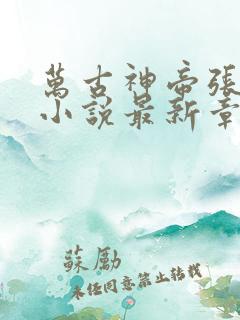 萬古神帝張
小說最新章
蘇勵
未經同意禁止轉載